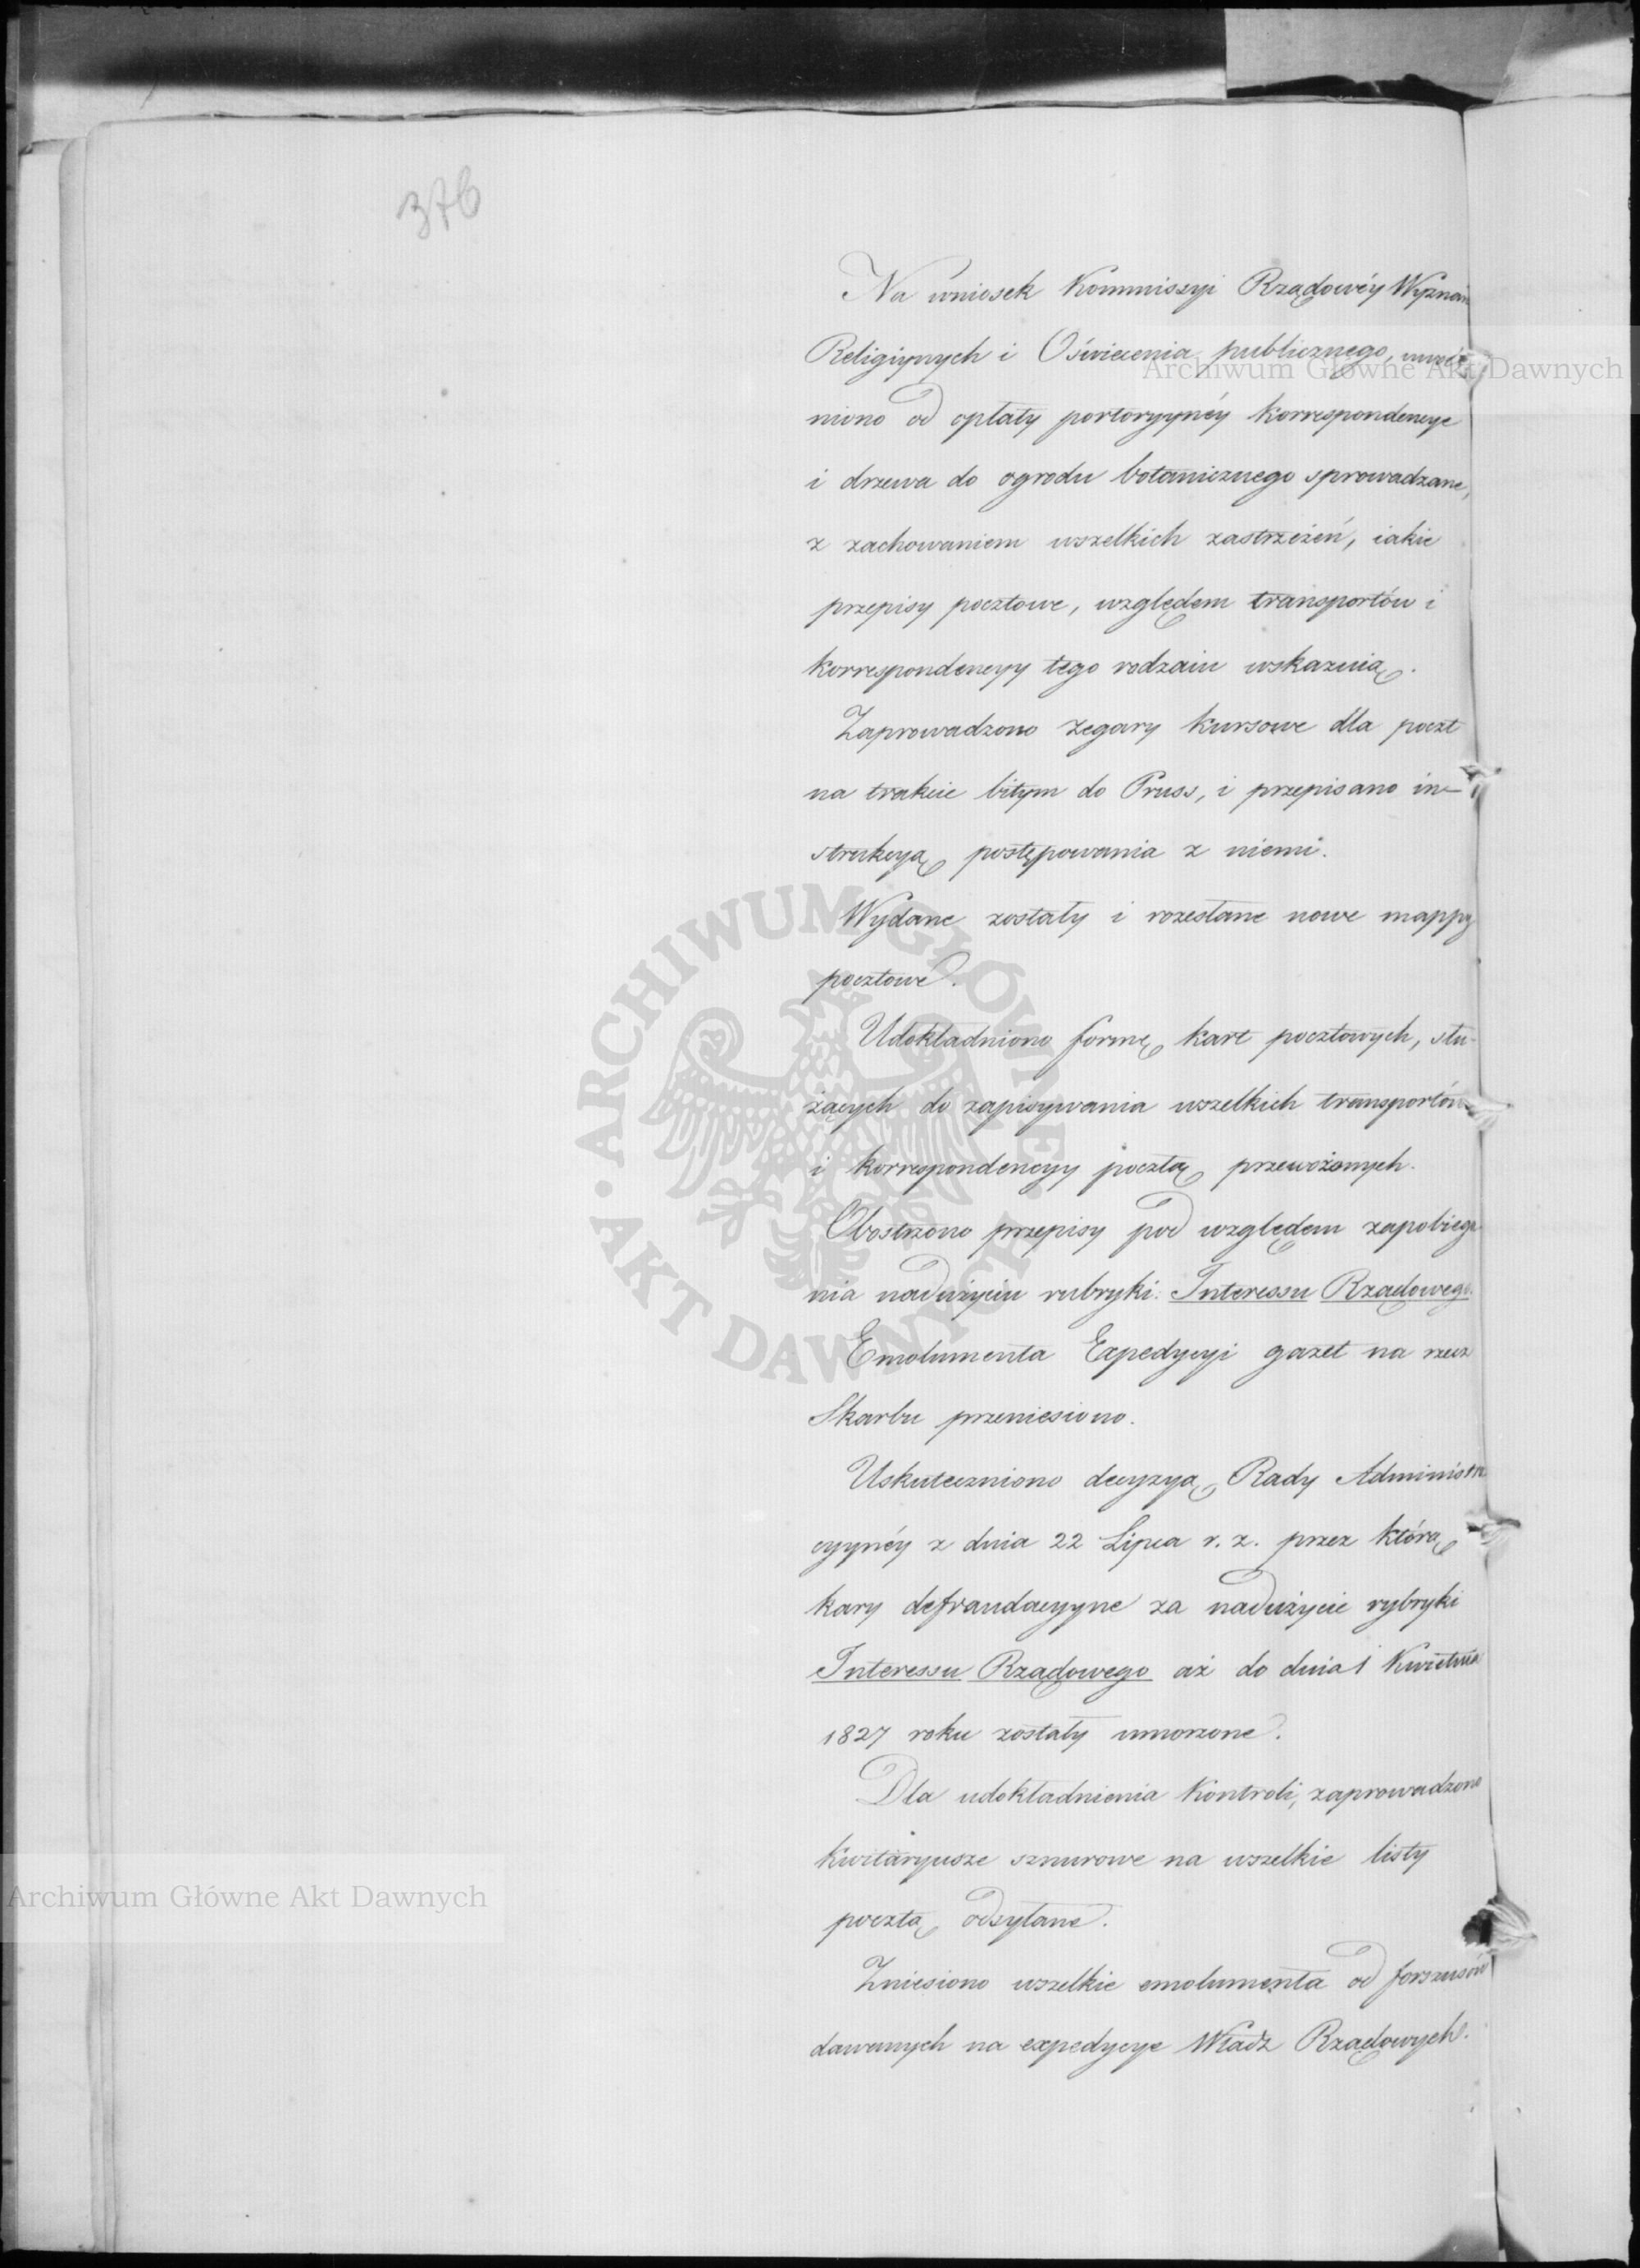 376
Na wniosek Kommissyi Rządowéy Wyznań
Religiynych i Oświecenia publicznego, uwol-
niono od opłaty portoryynéy korrespondencye
i drzewa do ogrodu botanicznego sprowadzane,
z zachowaniem wszelkich zastrzeżeń, iakie
przepisy pocztowe, względem transportów i
korrespondencyy tego rodzaiu wskazuią.
Zaprowadzono zegary kursowe dla poczt
na trakcie bitym do Pruss, i przepisano in-
strukcyą postępowania z niemi.
Wydane zostały i rozesłane nowe mappy
pocztowe.
Udokładniono formę kart pocztowych, słu-
żących do zapisywania wszelkich transportów
i korrespondencyy pocztą przewożonych.
Obostrzono przepisy pod względem zapobieże-
nia nadużyciu rubryki: Interessu Rządowego.
Emolumenta Expedycyi gazet na rzecz
Skarbu przeniesiono.
Uskuteczniono decyzyą Rady Administra
cyynéy z dnia 22 Lipca r. z. przez którą
kary defraudacyyne za nadużycie rybryki
Interessu Rządowego aż do dnia 1 Kwietnia
1827 roku zostały umorzone.
Dla udokładnienia Kontroli, zaprowadzono
kwitaryusze sznurowe na wszelkie listy
pocztą odsyłane.
Zniesiono wszelkie emolumenta od forszusów
dawanych na expedycye Władz Rządowych.
Archiwum Główne Akt Dawnych
ARCHIWUM GŁÓWNE • AKT DAWNYCH •
Archiwum Główne Akt Dawnych